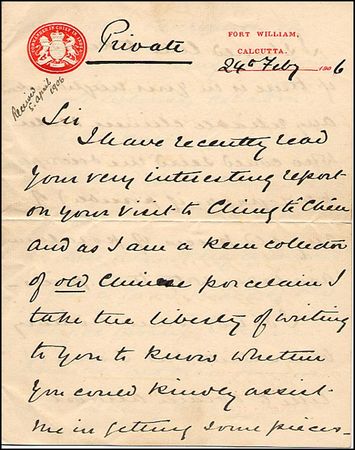 COMMANDER IN CHIEF IN INDIA
Private
FORT WILLIAM,
CALCUTTA.
24th Feby 1906
Received
5. april
1906
Sir
I have recently read
your very interesting report
on your visit to Ching tê Chên
and as I am a keen collector
of old Chinese porcelain I
take the liberty of writing
to you to know whether
you could kindly assist
me in getting some pieces-